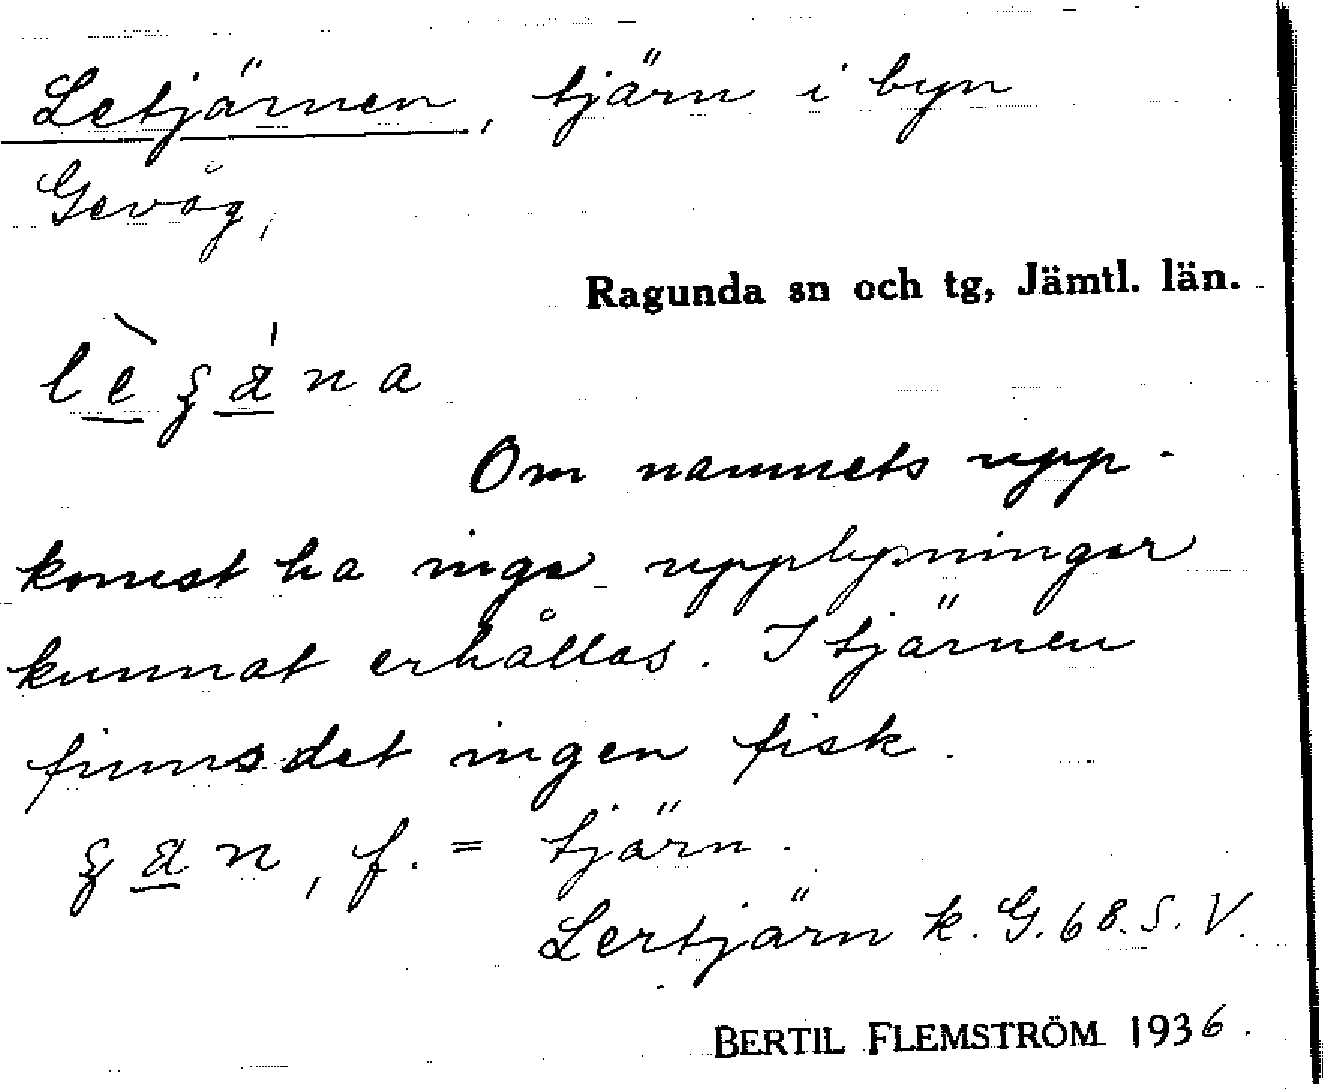 Letjärnen, tjärn i byn
Gevåg,
Ragunda sn och tg, Jämtl. län.
lèʂána
Om namnets upp-
komst ha inga upplysningar
kunnat erhållas. I tjärnen
finns det ingen fisk.
ʂan, f. = tjärn.
Lertjärn k. G. 68. S. V.
BERTIL FLEMSTRÖM 1936.